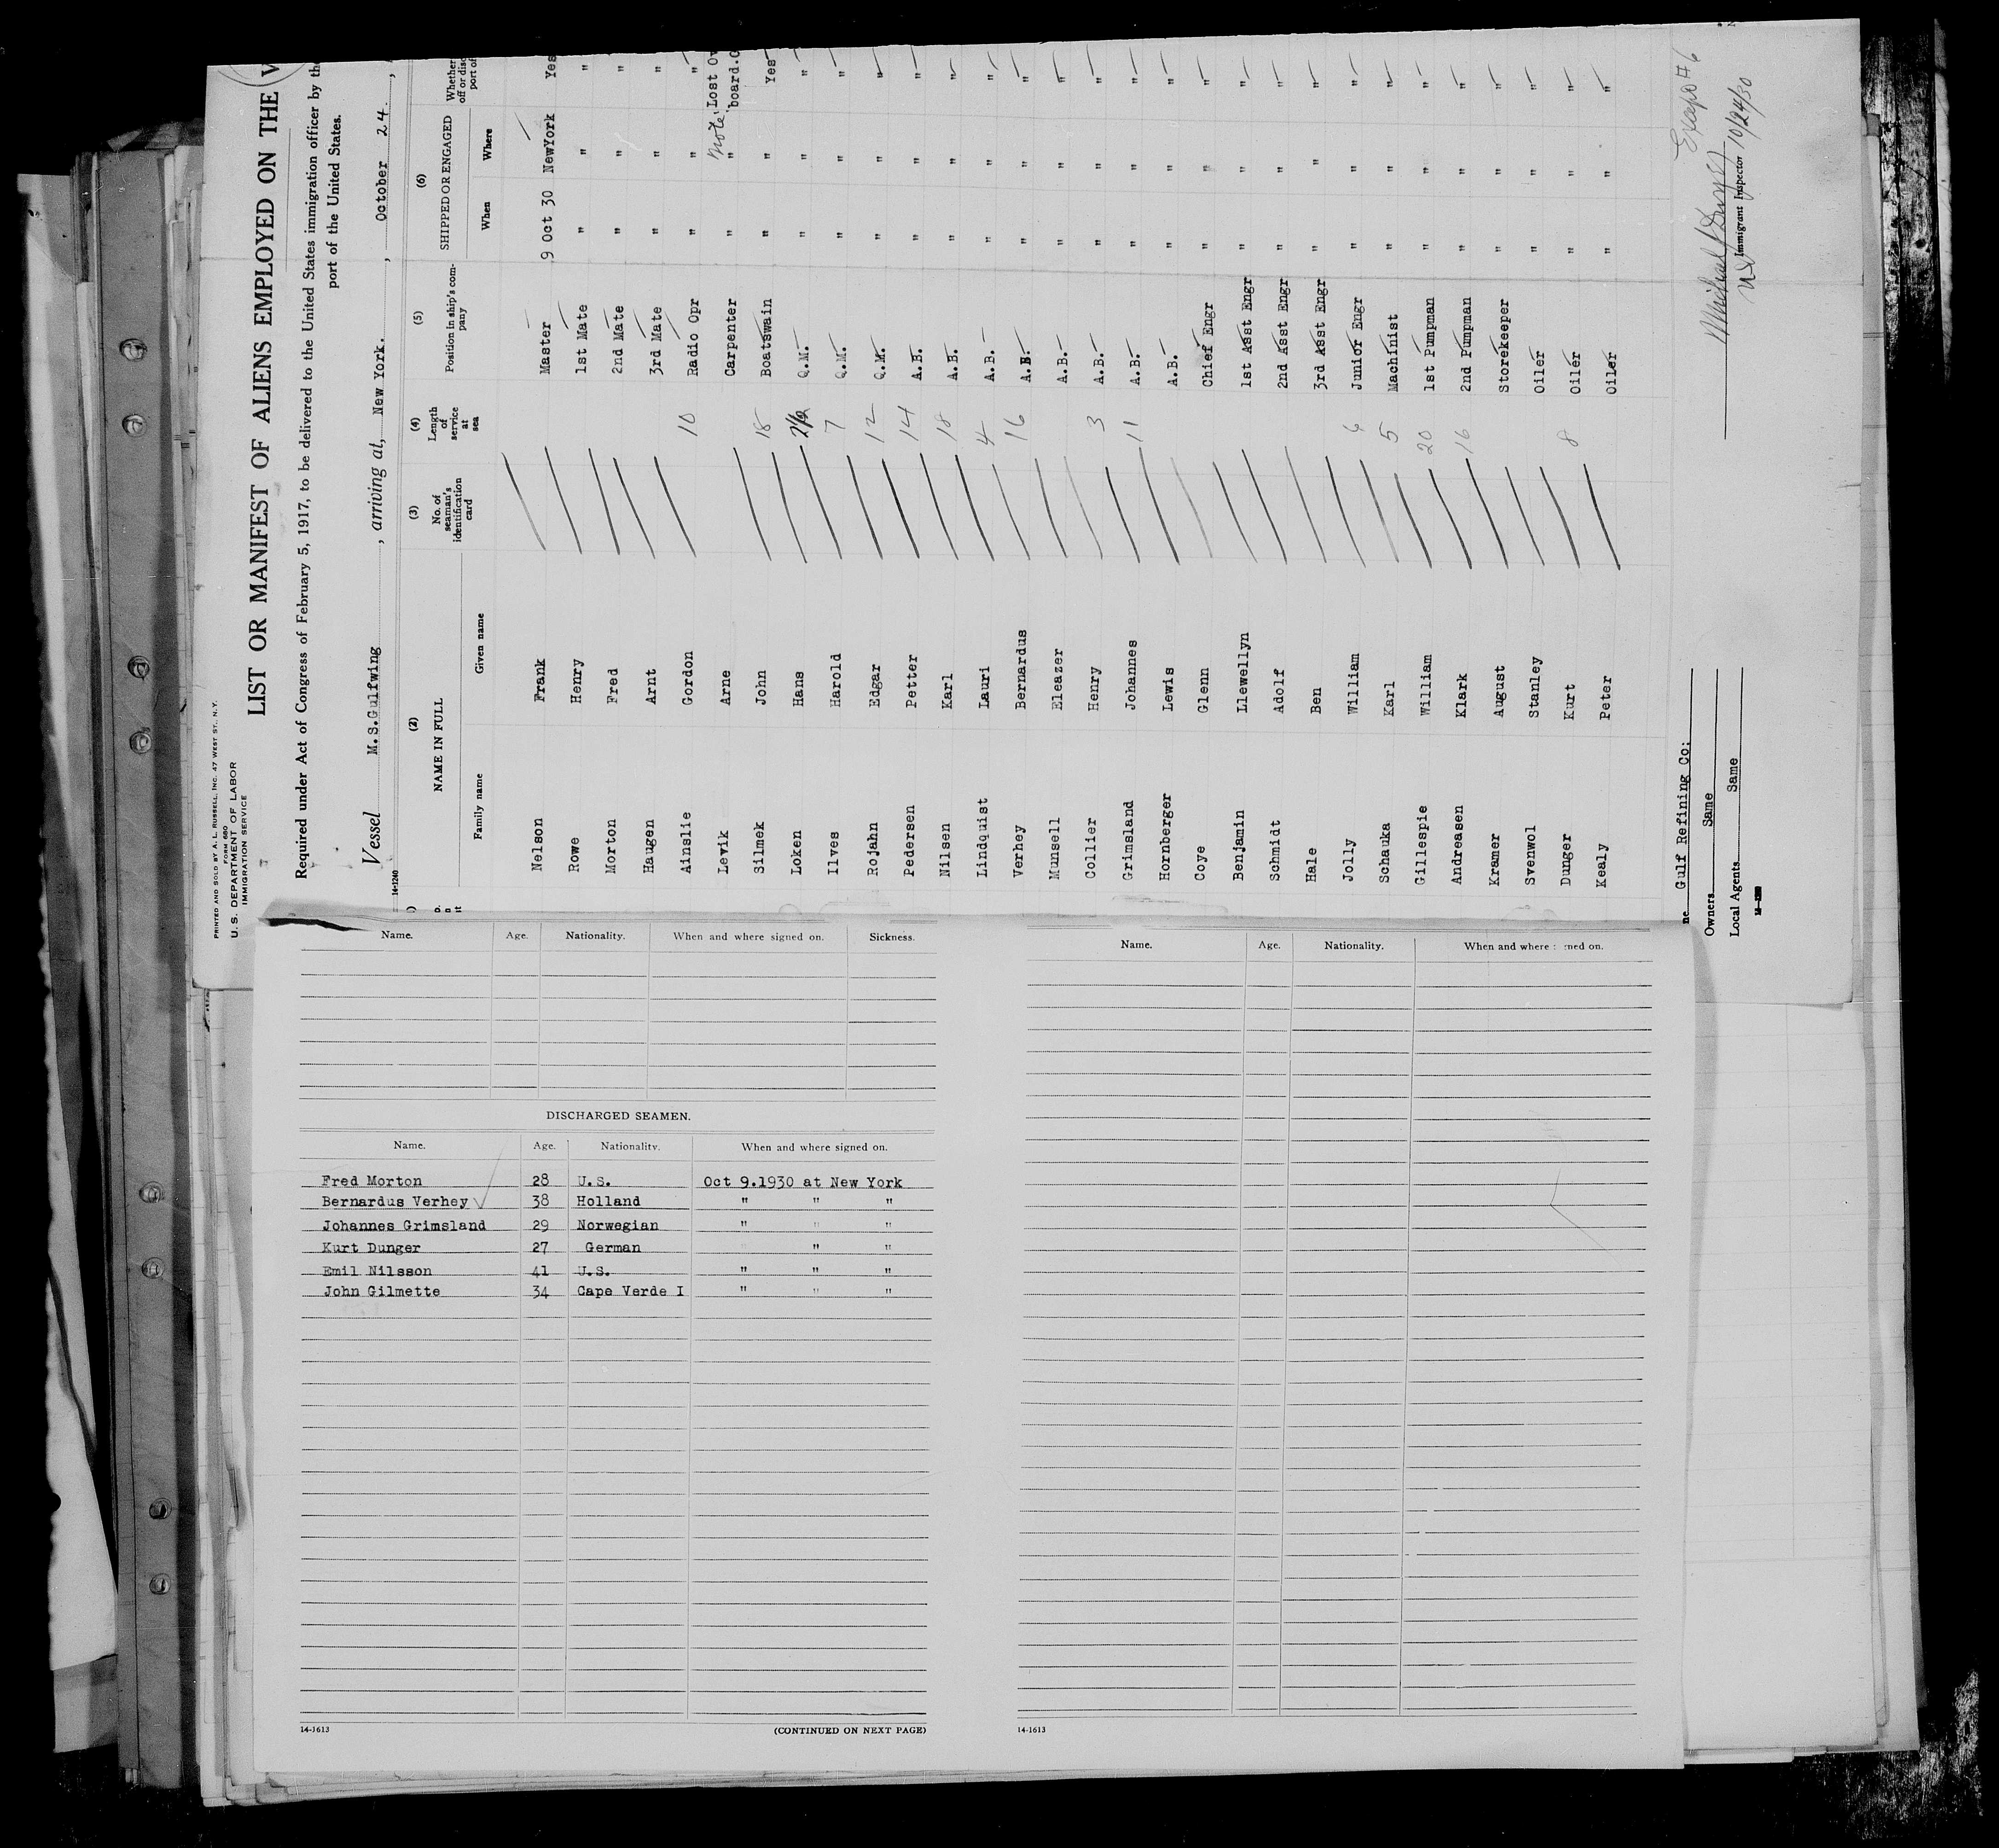 PRINTED AND SOLD BY A. L. RUSSELL, INC. 47 WEST ST., N.Y.
FORM 680
U. S. DEPARTMENT OF LABOR
IMMIGRATION SERVICE
LIST OR MANIFEST OF ALIENS EMPLOYED ON THE
Required under Act of Congress of February 5, 1917, to be delivered to the United States immigration officer by the
port of the United States.
Vessel M.S.Gulfwing, arriving at, New York., October 24.,
14-1240
(2) (3) (4) (5) (6)
NAME IN FULL No. of seaman's identification card Length of service at sea Position in ship's company SHIPPED OR ENGAGED Whether
Family name Given name When Where
Nelson Frank Master 9 Oct 30 NewYork Yes
Rowe Henry 1st Mate " " "
Morton Fred 2nd Mate " " "
Haugen Arnt 3rd Mate " " "
Ainslie Gordon 10 Radio Opr " " "
Levik Arne Carpenter " " Note, Lost Ov
board.
Silmek John 18 Boatswain " " Yes
Loken Hans 2½ Q.M. " " "
Ilves Harold 7 Q.M. " " "
Rojahn Edgar 12 Q.M. " " "
Pedersen Petter 14 A.B. " " "
Nilsen Karl 18 A.B. " " "
Lindquist Lauri 4 A.B. " " "
Verhey Bernardus 16 A.B. " " "
Munsell Eleazer A.B. " " "
Collier Henry 3 A.B. " " "
Grimsland Johannes 11 A.B. " " "
Hornberger Lewis A.B. " " "
Coye Glenn Chief Engr " " "
Benjamin Llewellyn 1st Asst Engr " " "
Schmidt Adolf 2nd Asst Engr " " "
Hale Ben 3rd Asst Engr " " "
Jolly William 6 Junior Engr " " "
Schauka Karl 5 Machinist " " "
Gillespie William 20 1st Pumpman " " "
Andreasen Klark 16 2nd Pumpman " " "
Kramer August Storekeeper " " "
Svenwol Stanley Oiler " " "
Dunger Kurt 8 Oiler " " "
Kealy Peter Oiler " " "
Gulf Refining Co:
Owners Same
Local Agents Same
Immigrant Inspector 10/24/30
Name. Age. Nationality. When and where signed on. Sickness.
DISCHARGED SEAMEN.
Name. Age. Nationality. When and where signed on.
Fred Morton 28 U.S. Oct 9.1930 at New York
Bernardus Verhey 38 Holland " " "
Johannes Grimsland 29 Norwegian " " "
Kurt Dunger 27 German " "
Emil Nilsson 41 U.S. " " "
John Gilmette 34 Cape Verde I " " "
14-1613 (CONTINUED ON NEXT PAGE)
Name. Age. Nationality. When and where ned on.
14-1613